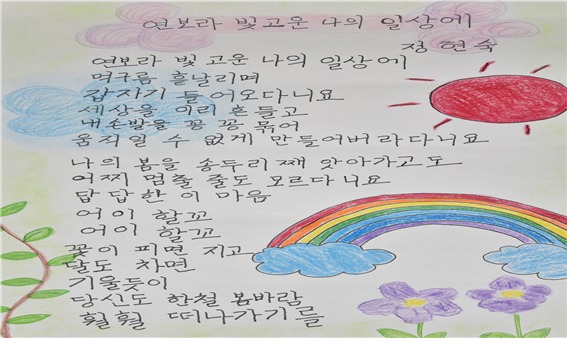 연보라 빛 고운 나의 일상에
정 현 숙
연보라 빛 고운 나의 일상에
먹구름 흩날리며
갑자기 들어오다니요
세상을 이리 흔들고
내손발을 꽁 꽁 묶어
움직일 수 없게 만들어버리다니요
나의 봄을 송두리 째 앗아가고도
어찌 멈출 줄도 모르다니요
답 답한 이 마음
어이 할꼬
어이 할꼬
꽃이 피면 지고
달도 차면
기울듯이
당신도 한철 봄바람
훨훨 떠나가기를